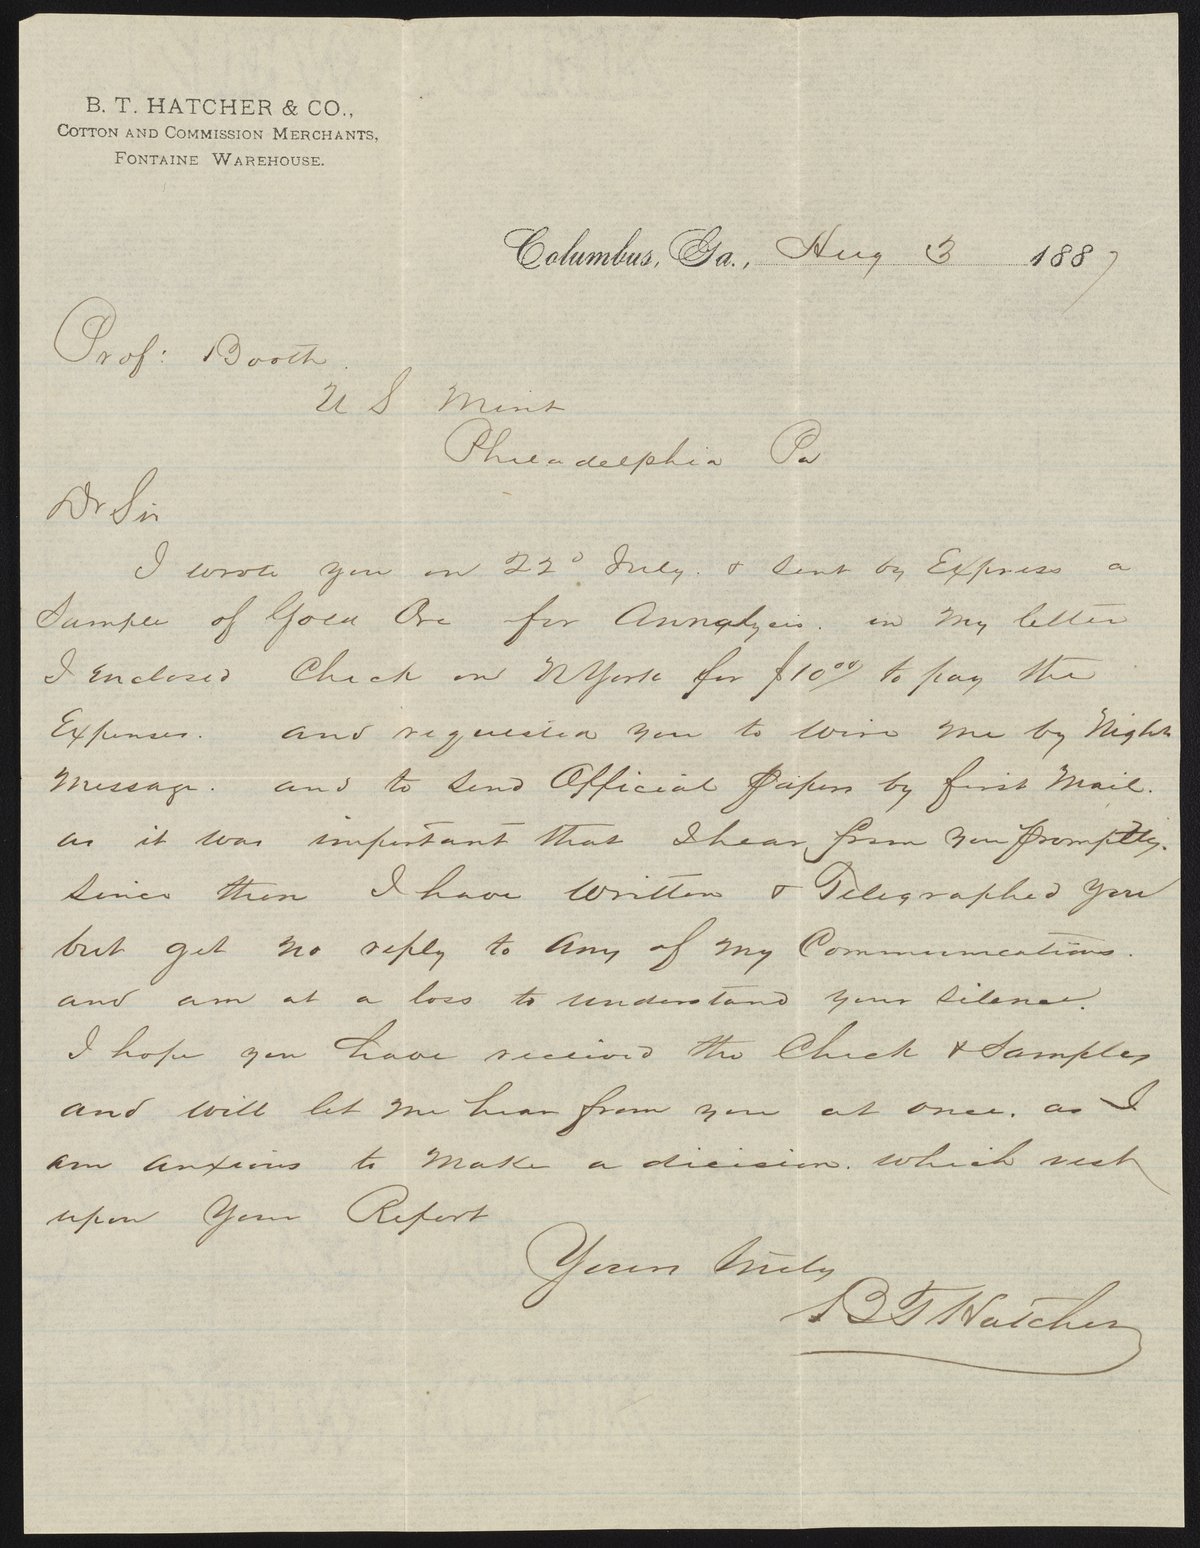 B. T. HATCHER & CO.,
COTTON AND COMMISSION MERCHANTS,
FONTAINE WAREHOUSE.
Columbus, Ga., Aug 3 1887
Prof: Booth
U S Mint
Philadelphia Pa
Dr Sir
I wrote you on 22d July. & sent by Express a
Sample of Gold Ore for Annalysis. in my letter
I enclosed Check on N York for $10.00 to pay the
Expenses. and requested you to wire me by Night
Message. and to send Official Papers by first Mail.
as it was important that I hear from you promptly.
Since then I have written & Telegraphed you
but get no reply to any of my Communications.
and am at a loss to understand your silence.
I hope you have received the Check & Samples
and will let me hear from you at once. as I
am anxious to make a dicision. which rest
upon your Report
Yours truly
B T Hatcher